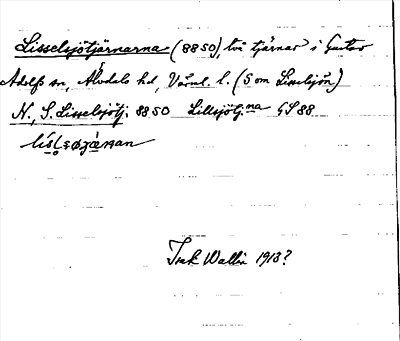 Lisselsjötjärnarna (8850), två tjärnar i Gustav
Adolfs sn, Älvdals hd, Värml. l. (Som Lisselsjön)
N., S. Lisselsjötj. 8850 Lillsjötj:na GS 88
Isak Wallin 1913?